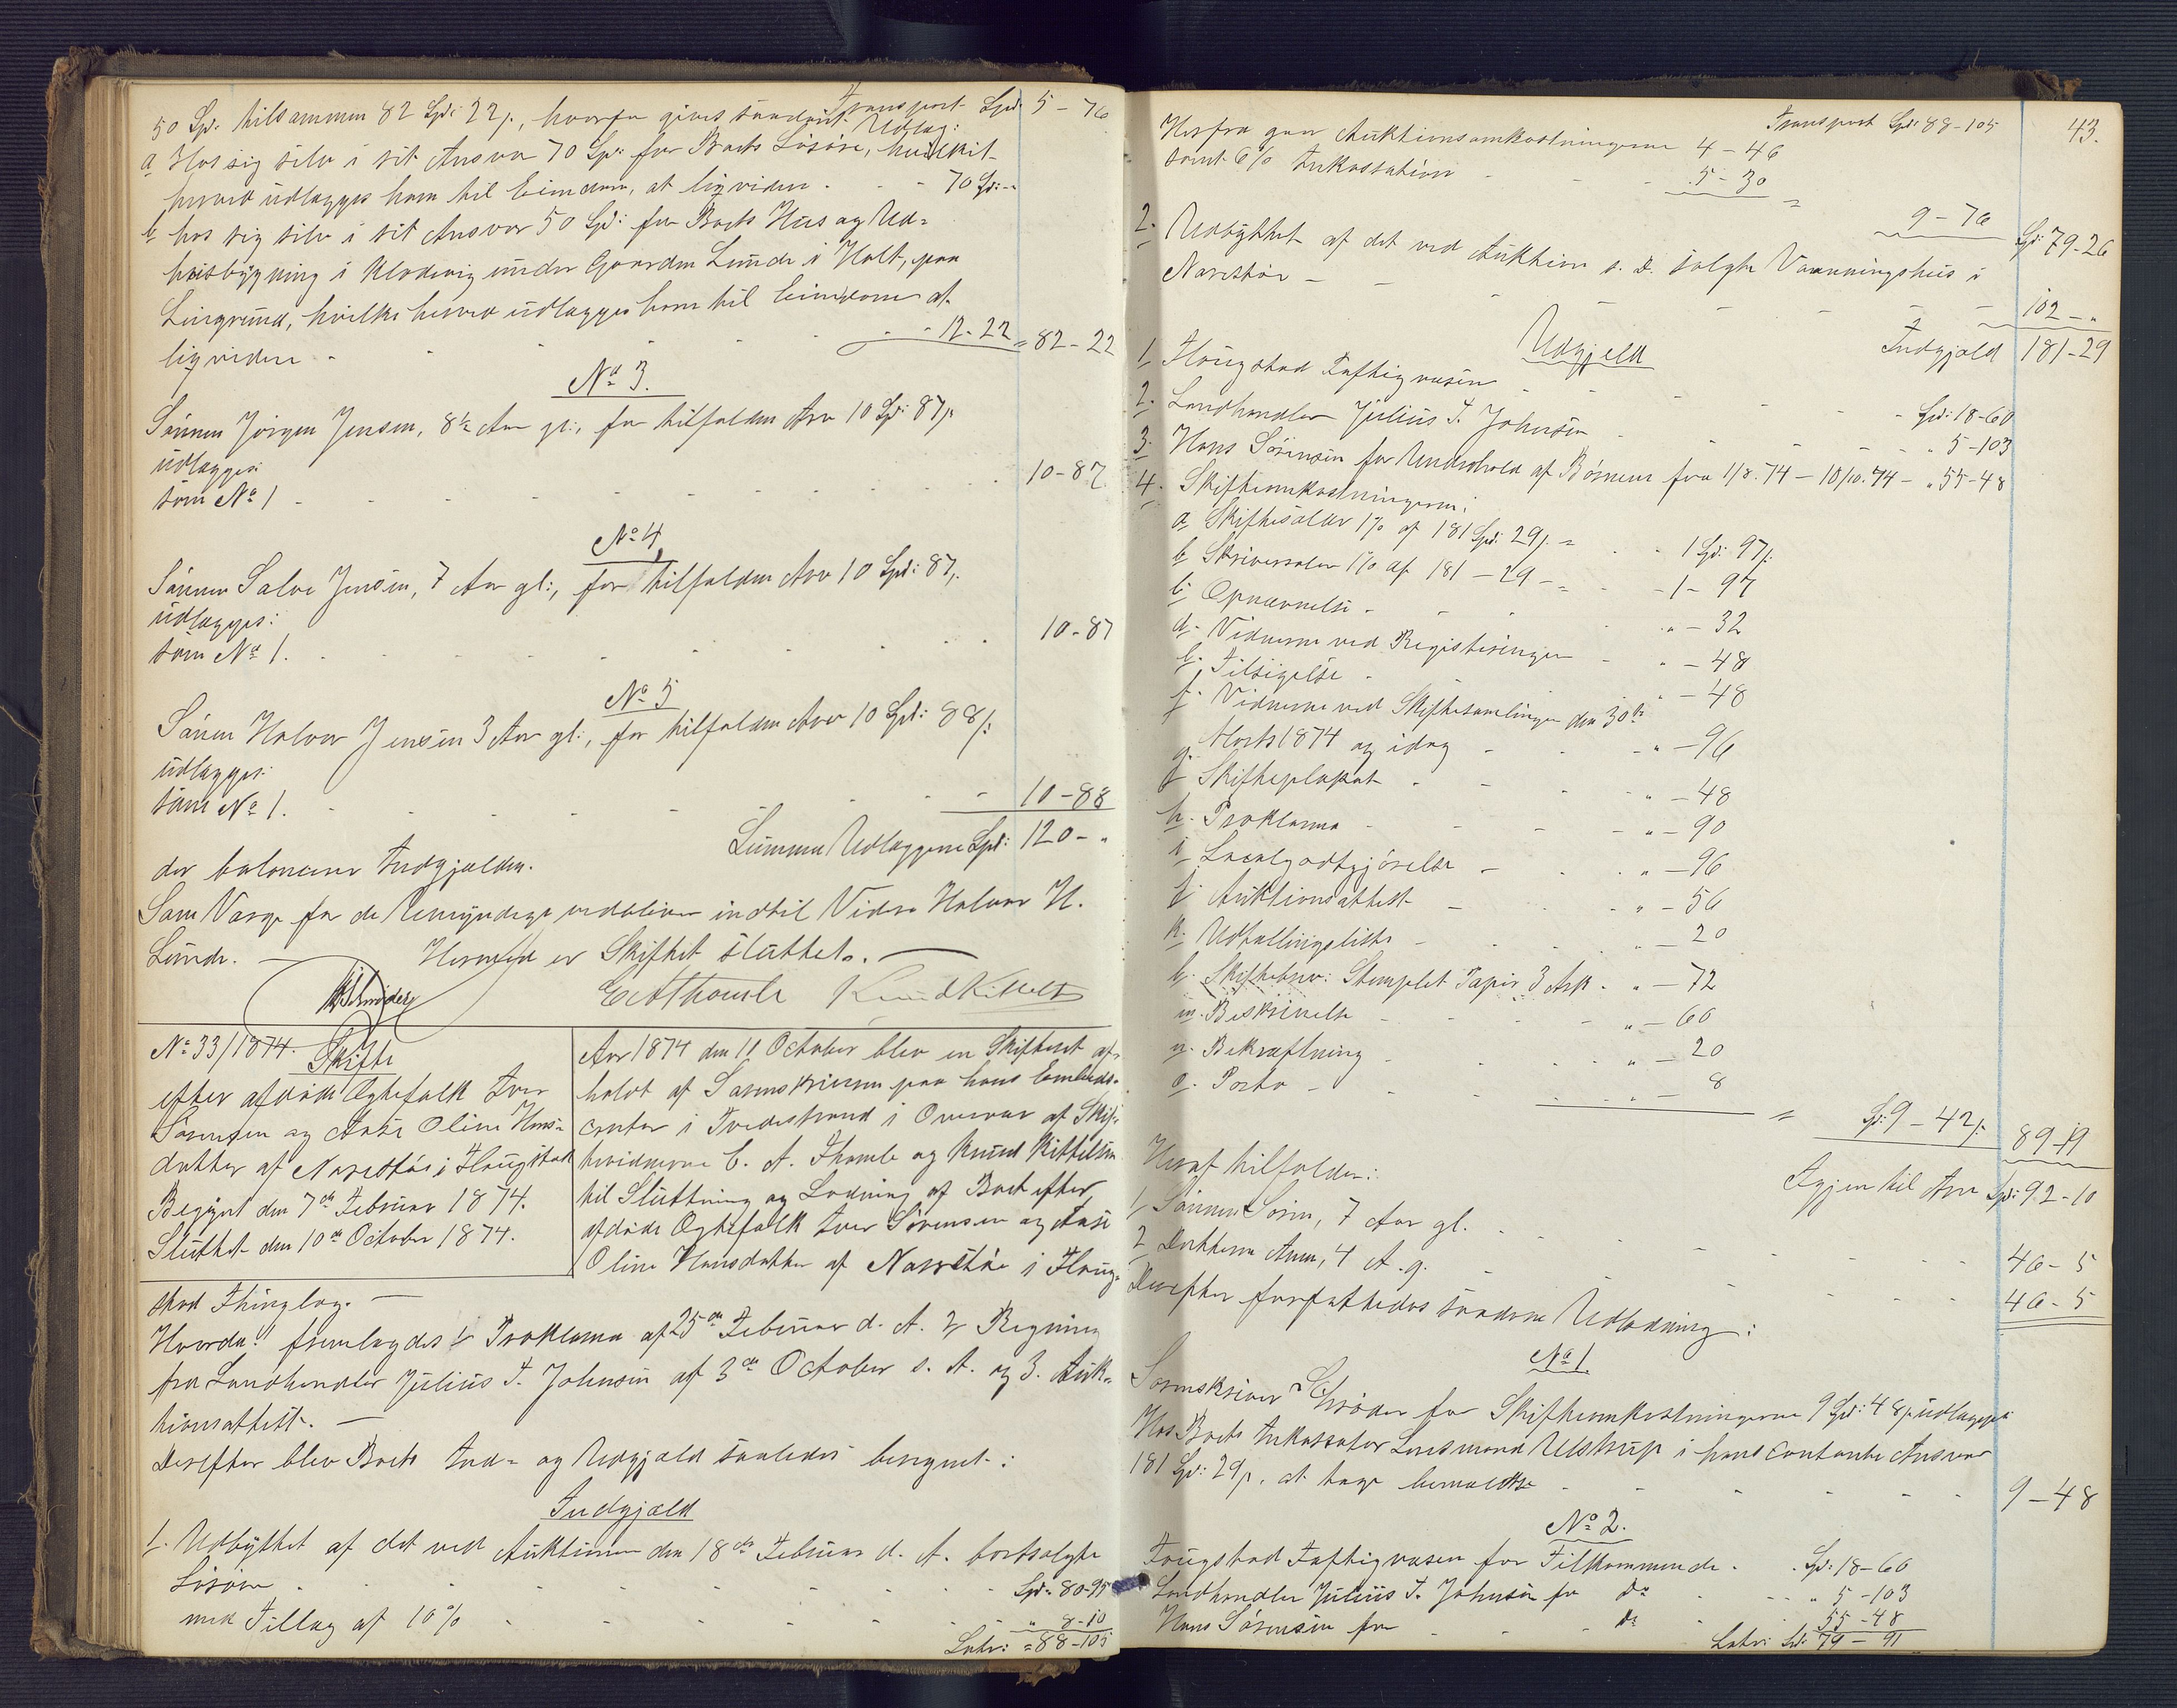 Transport Spd. 5 - 76
50 Spd. tilsammen 82 Spd: 22 s., hvorfor gives saadant Udlæg:
a Hos sig selv i sit Ansvar 70 Spd: for Boets Løsøre, hvilket
herved udlægges ham til Eiendom, at liqvidere - - 70 Spd: -
b hos sig selv i sit Ansvar 50 Spd: for Boets Hus og Ud=
huisbygning i Kladevig under Gaarden Lunde i Holt, paa
Leiegrund, hvilke herved udlægges ham til Eiendom at
liqvidere - - - 12-22 = 82-22
No 3.
Sønnen Jørgen Jensen, 8½ Aar gl:, for tilfalden Arv 10 Spd: 87 s.
udlægges:
som No 1 - - - 10-87
No 4,
Sønnen Salve Jensen, 7 Aar gl:, for tilfalden Arv 10 Spd: 87,
udlægges:
som No 1. - - - 10-87
No 5
Sønnen Halvor Jensen 3 Aar gl:, for tilfalden Arv 10 Spd: 88 s:
udlægges:
som No 1. - - - 10-88
Summa Udlæggene Spd: 120 - "
der balancerer Indgjælden.
Som Værge for de Umyndige vedbliver indtil Videre Halvor H.
Lunde. — Hermed er Skiftet sluttet. —
Schrøder E A Thomle Knud Kittels
No 33/1874. Skifte
efter afdøde Ægtefolk Iver
Sørensen og Anse Oline Hans=
datter af Narestøe i Flaugstad
Begyndt den 7de Februar 1874.
Sluttet den 10de October 1874.
Aar 1874 den 10 October blev en Skifteret af=
holdt af Sorenskriveren paa hans Embeds=
contor i Tvedestrand i Overvær af Skif=
tevidnerne E. A. Thomle og Knud Kittelsen
til Slutning og Lodning af Boet efter
afdøde Ægtefolk Iver Sørensen og Anse
Oline Hansdatter af Narestøe i Flaug=
stad Thinglag. —
Hvorda: fremlagdes 1, Proklama af 25de Februar d. A. 2, Regning
fra Landhandler Julius T. Johnsen af 3de October s. A. og 3. Auk=
tionsattest. —
Derefter blev Boets Ind= og Udgjæld saaledes beregnet:
Indgjæld
1. Udbyttet af det ved Auktionen den 18de Februar d. A. bortsolgte
Løsøre - - - Spd. 80-95
med Tillæg af 10% - - - " 8-10
Latus: = 88-105
43.
Transport Spd: 88-105
Herfra gaar Auktionsomkostningerne 4-46
samt 6% Inkassation - - 5-30 =
9-76 Spd: 79-26
2. Udbyttet af det ved Auktion s. D. solgte Vaaningshus i
Narestøe - - - 102 - "
Indgjæld 181-29
Udgjæld
1 Flaugstad Fattigvæsen - - - Spd: 18-60
2. Landhandler Julius T. Johnsen - - " 5-103
3. Hans Sørensen for Underhold af Børnene fra 1/8.74 - 10/10.74 - " 55-48
4. Skifteomkostningerne:
a Skiftesalær 1% af 181 Spd: 29 s. = - - 1 Spd: 97 s.
b Skriversalær 1% af 181 - 29 - = - - 1 - 97
c. Opnævnelse - - " - 32
d. Vidnerne ved Registreringen - " - 48
e. Tilsigelse - " - 48
f. Vidnerne ved Skiftesamlingen den 30te
Marts 1874 og idag - - " - 96
g. Skifteplakat - - " - 48
h. Proklama - - " - 90
i Localgodtgjørelse - " - 96
j Auktionsattest - - " - 56
k. Udtællingsliste - - " - 20
l. Skiftebrev: Stemplet Papir 3 Ark - " - 72
m. Beskrivelse - - " - 60
n. Bekræftning - " - 20
o. Porto - - " - 8
= Spd. 9 - 42 s. 89-19
Igjen til Arv Spd: 92-10
Heraf tilfalder:
1, Sønnen Søren, 7 Aar gl. - - 46-5
2 Datteren Anna, 4 A. g. - - 46-5
Derefter forfattedes saadan Udlodning:
No 1.
Sorenskriver Schrøder for Skifteomkostningerne 9 Spd: 48 s. udlægges
Hos Boets Inkassator Lensmand Ulstrup i hans contante Ansvar
181 Spd: 29 s. at tage bemeldte - - 9-48
No 2.
Flaugstad Fattigvæsen for Tilkommende - Spd: 18-60
Landhandler Julius T. Johnsen for do - " 5-103
Hans Sørensen for - do 55-48
Latus Spd: 79-91